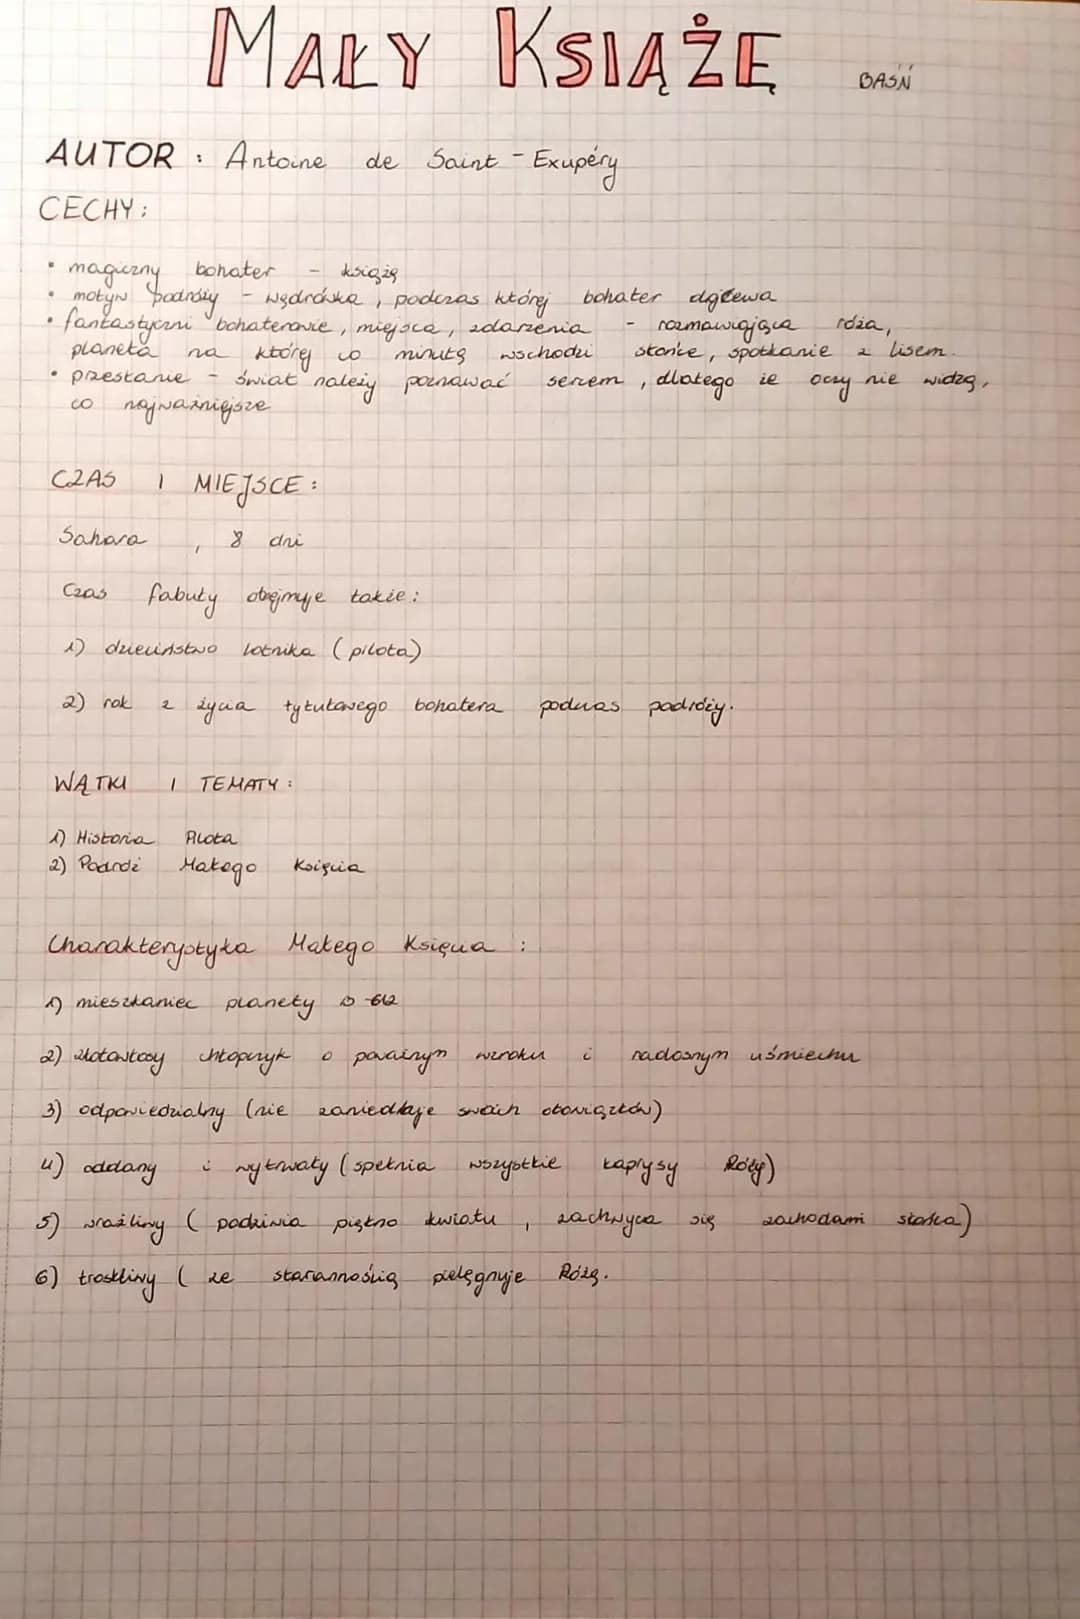 MAŁY KSIĄŻĘ BAŚŃ
AUTOR : Antoine de Saint - Exupéry
CECHY:
• magiczny bohater - książę
• motyw podróży - wędrówka, podczas której bohater dojrzewa
• fantastyczni bohaterowie, miejsca, zdarzenia - rozmawiająca róża,
planeta na której co minutę wschodzi słońce, spotkanie z lisem.
• przesłanie - świat należy poznawać sercem, dlatego że oczy nie widzą,
co najważniejsze
CZAS I MIEJSCE:
Sahara, 8 dni
Czas fabuły obejmuje także:
1) dzieciństwo lotnika (pilota)
2) rok z życia tytułowego bohatera podczas podróży.
WĄTKI I TEMATY:
1) Historia Pilota
2) Podróż Małego Księcia
Charakterystyka Małego Księcia :
1) mieszkaniec planety B-612
2) złotowłosy chłopczyk o poważnym wzroku i radosnym uśmiechu
3) odpowiedzialny (nie zaniedbuje swoich obowiązków)
4) oddany i wytrwały (spełnia wszystkie kaprysy Róży)
5) wrażliwy ( podziwia piękno kwiatu, zachwyca się zachodami słońca)
6) troskliwy ( ze starannością pielęgnuje Różę.